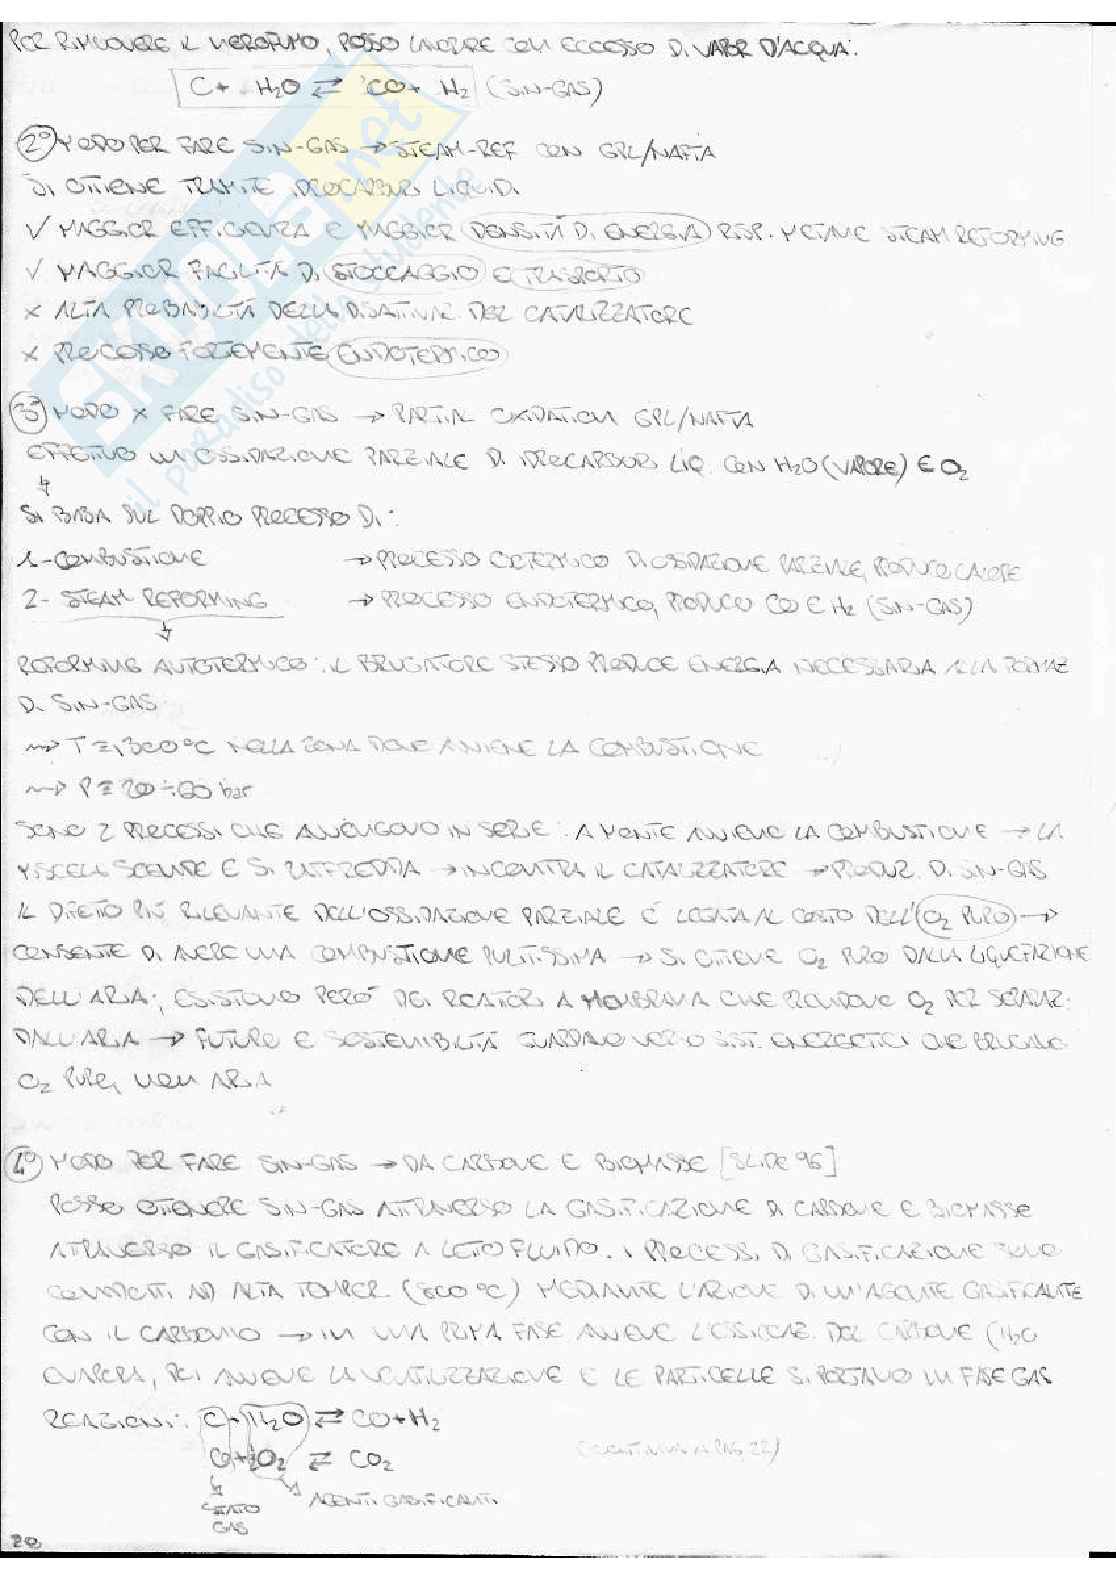 PER RIMUOVERE IL NEROFUMO, POSSO LAVORARE CON ECCESSO DI VAPOR D'ACQUA:
C + H2O ⇄ CO + H2 (SIN-GAS)
2° MODO PER FARE SIN-GAS → STEAM-REF CON GPL/NAFTA
SI OTTIENE TRAMITE IDROCARBURI LIQUIDI
√ MAGGIOR EFFICIENZA E MAGGIOR DENSITÀ DI ENERGIA RISP. METANE STEAM REFORMING
√ MAGGIOR FACILITÀ DI STOCCAGGIO E TRASPORTO
× ALTA PROBABILITÀ DELLA DISATTIVAZ. DEL CATALIZZATORE
× PROCESSO FORTEMENTE ENDOTERMICO
3° MODO × FARE SIN-GAS → PARTIAL OXIDATION GPL/NAFTA
EFFETTUO UN OSSIDAZIONE PARZIALE DI IDROCARBURI LIQ. CON H2O (VAPORE) E O2
SI BASA SUL DOPPIO PROCESSO DI:
1- COMBUSTIONE → PROCESSO ESOTERMICO DI OSSIDAZIONE PARZIALE, PRODUCO CALORE
2- STEAM REFORMING → PROCESSO ENDOTERMICO, PRODUCO CO E H2 (SIN-GAS)
REFORMING AUTOTERMICO: IL BRUCIATORE STESSO PRODUCE ENERGIA NECESSARIA ALLA FORMAZ
DI SIN-GAS
⇝ T ≅ 1300°C NELLA ZONA DOVE AVVIENE LA COMBUSTIONE
⇝ P ≅ 20÷60 bar
SONO 2 PROCESSI CHE AVVENGONO IN SERIE: A MONTE AVVIENE LA COMBUSTIONE → LA
MISCELA SCENDE E SI RAFFREDDA → INCONTRA IL CATALIZZATORE → PRODUZ. DI SIN-GAS
IL DIFETTO PIÙ RILEVANTE DELL'OSSIDAZIONE PARZIALE È LEGATA AL COSTO DELL'O2 PURO →
CONSENTE DI AVERE UNA COMBUSTIONE PULITISSIMA → SI OTTIENE O2 PURO DALLA LIQUEFAZIONE
DELL'ARIA; ESISTONO PERÒ DEI REATTORI A MEMBRANA CHE PRENDONO O2 PER SEPARAZ.
DALL'ARIA → FUTURO E SOSTENIBILITÀ GUARDANO VERSO SIST. ENERGETICI CHE BRUCIANO
O2 PURO, NON ARIA
4° MODO PER FARE SIN-GAS → DA CARBONE E BIOMASSE [SLIDE 96]
POSSO OTTENERE SIN-GAS ATTRAVERSO LA GASIFICAZIONE DI CARBONE E BIOMASSE
ATTRAVERSO IL GASIFICATORE A LETTO FLUIDO. I PROCESSI DI GASIFICAZIONE SONO
CONDOTTI AD ALTA TEMPER. (800°C) MEDIANTE L'AZIONE DI UN'AGENTE GASIFICANTE
CON IL CARBONIO → IN UNA PRIMA FASE AVVIENE L'ESSICCAZ. DEL CARBONE (H2O
EVAPORA, POI AVVIENE LA VOLATILIZZAZIONE E LE PARTICELLE SI PORTANO IN FASE GAS
REAZIONI: C + H2O ⇄ CO + H2
CO + ½O2 ⇄ CO2
(CONTINUA A PAG. 22)
STATO
GAS
AGENTI GASIFICANTI
20
SKUOLA.net
il paradiso dello studente